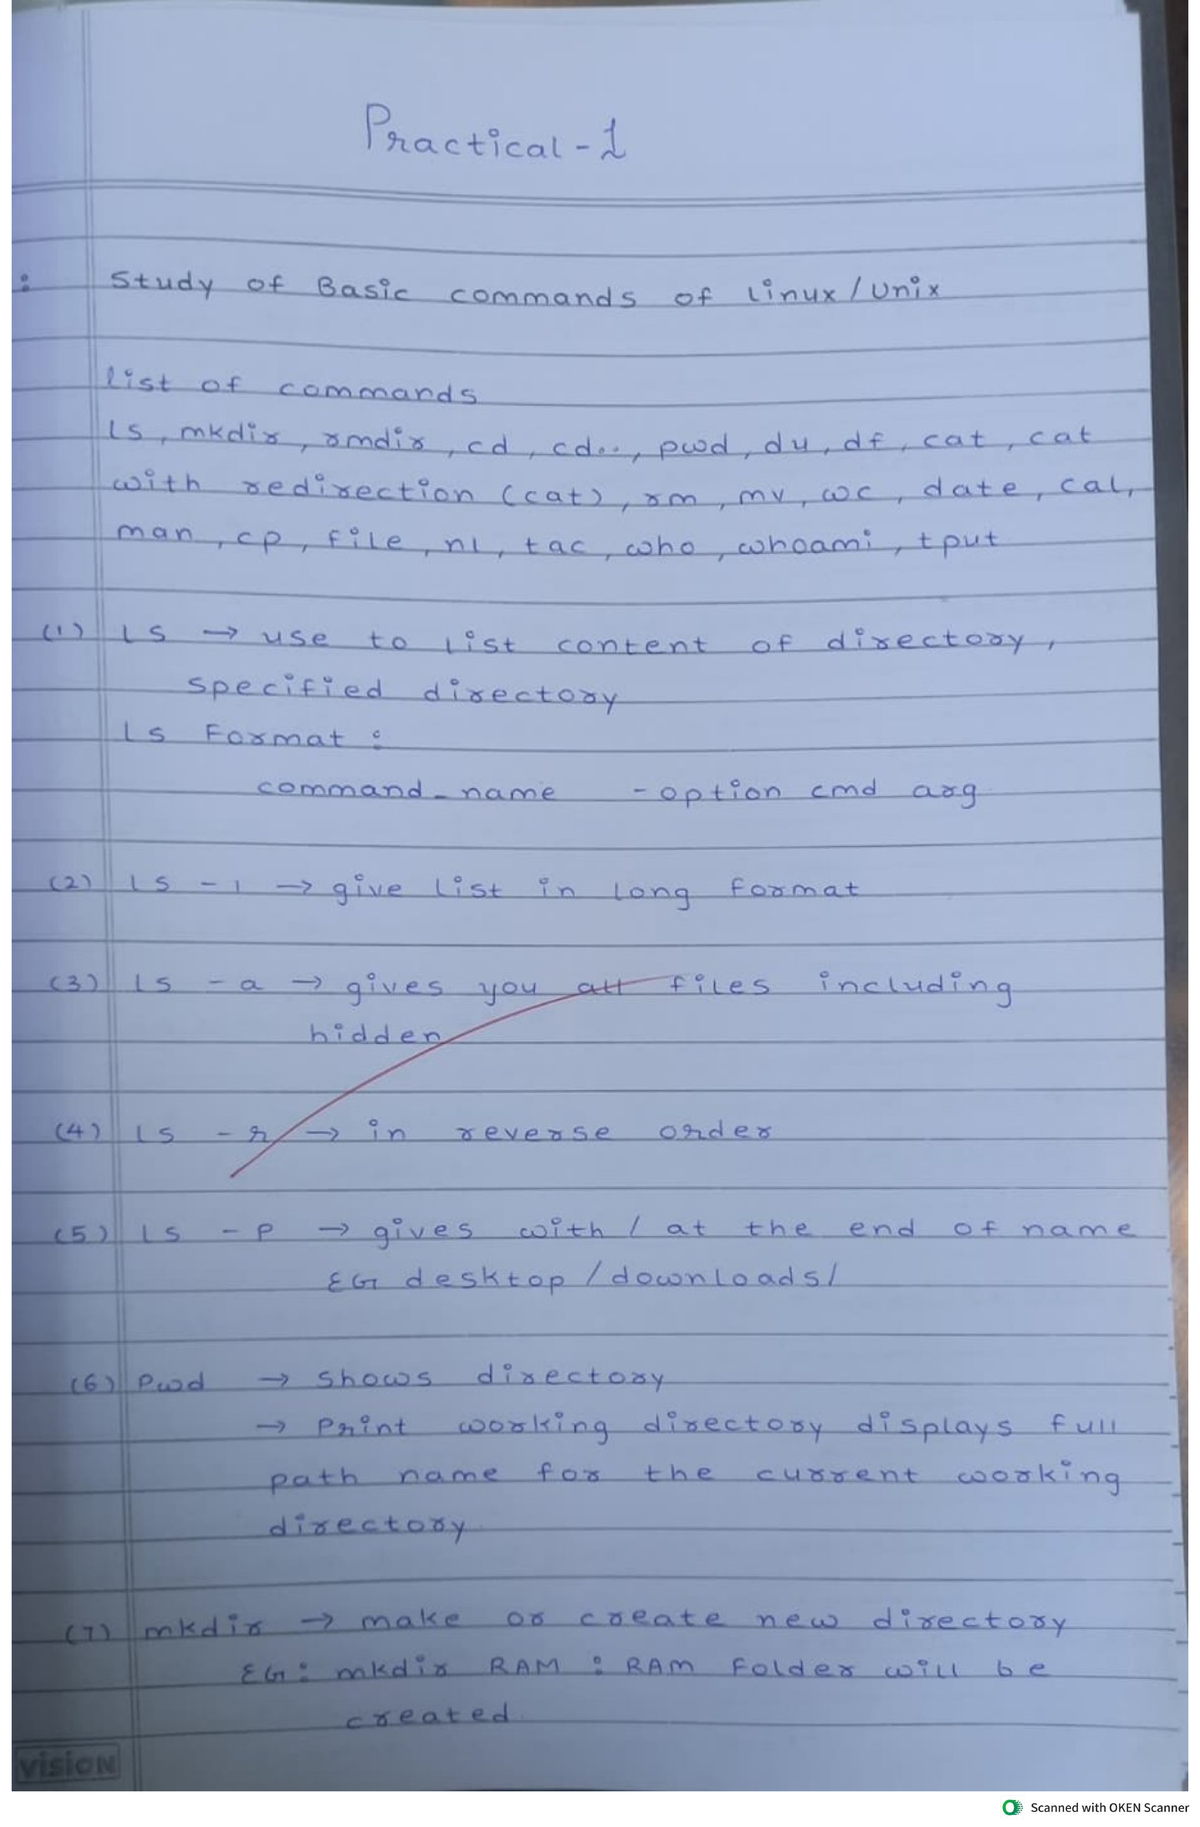 Practical-1
: Study of Basic commands of Linux/Unix
List of commands
ls, mkdir, rmdir, cd, cd.., pwd, du, df, cat, cat
with redirection (cat), rm, mv, wc, date, cal,
man, cp, file, nl, tac, who, whoami, tput
(1) ls → use to list content of directory,
specified directory
ls Format :
command_name -option cmd arg
(2) ls -l → give list in long format
(3) ls -a → gives you all files including
hidden
(4) ls -r → in reverse order
(5) ls -p → gives with / at the end of name
EG desktop/downloads/
(6) Pwd → shows directory
→ Print working directory displays full
path name for the current working
directory
(7) mkdir → make or create new directory
EG: mkdir RAM : RAM Folder will be
created
vision
Scanned with OKEN Scanner